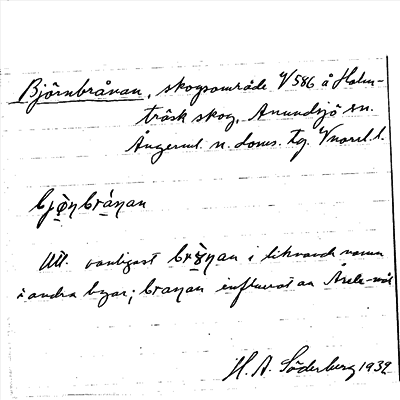 Björnbrånan, skogsområde V 586 å Holm-
träsk skog, Anundsjö sn.
Ångerml. n. doms. tg. Vnorrl. l.
bjø̀ŋbrånan
Utt. vanligast i liknande namn
i andra byar; branan influerat av Åsele-mål
H. A. Söderberg 1932